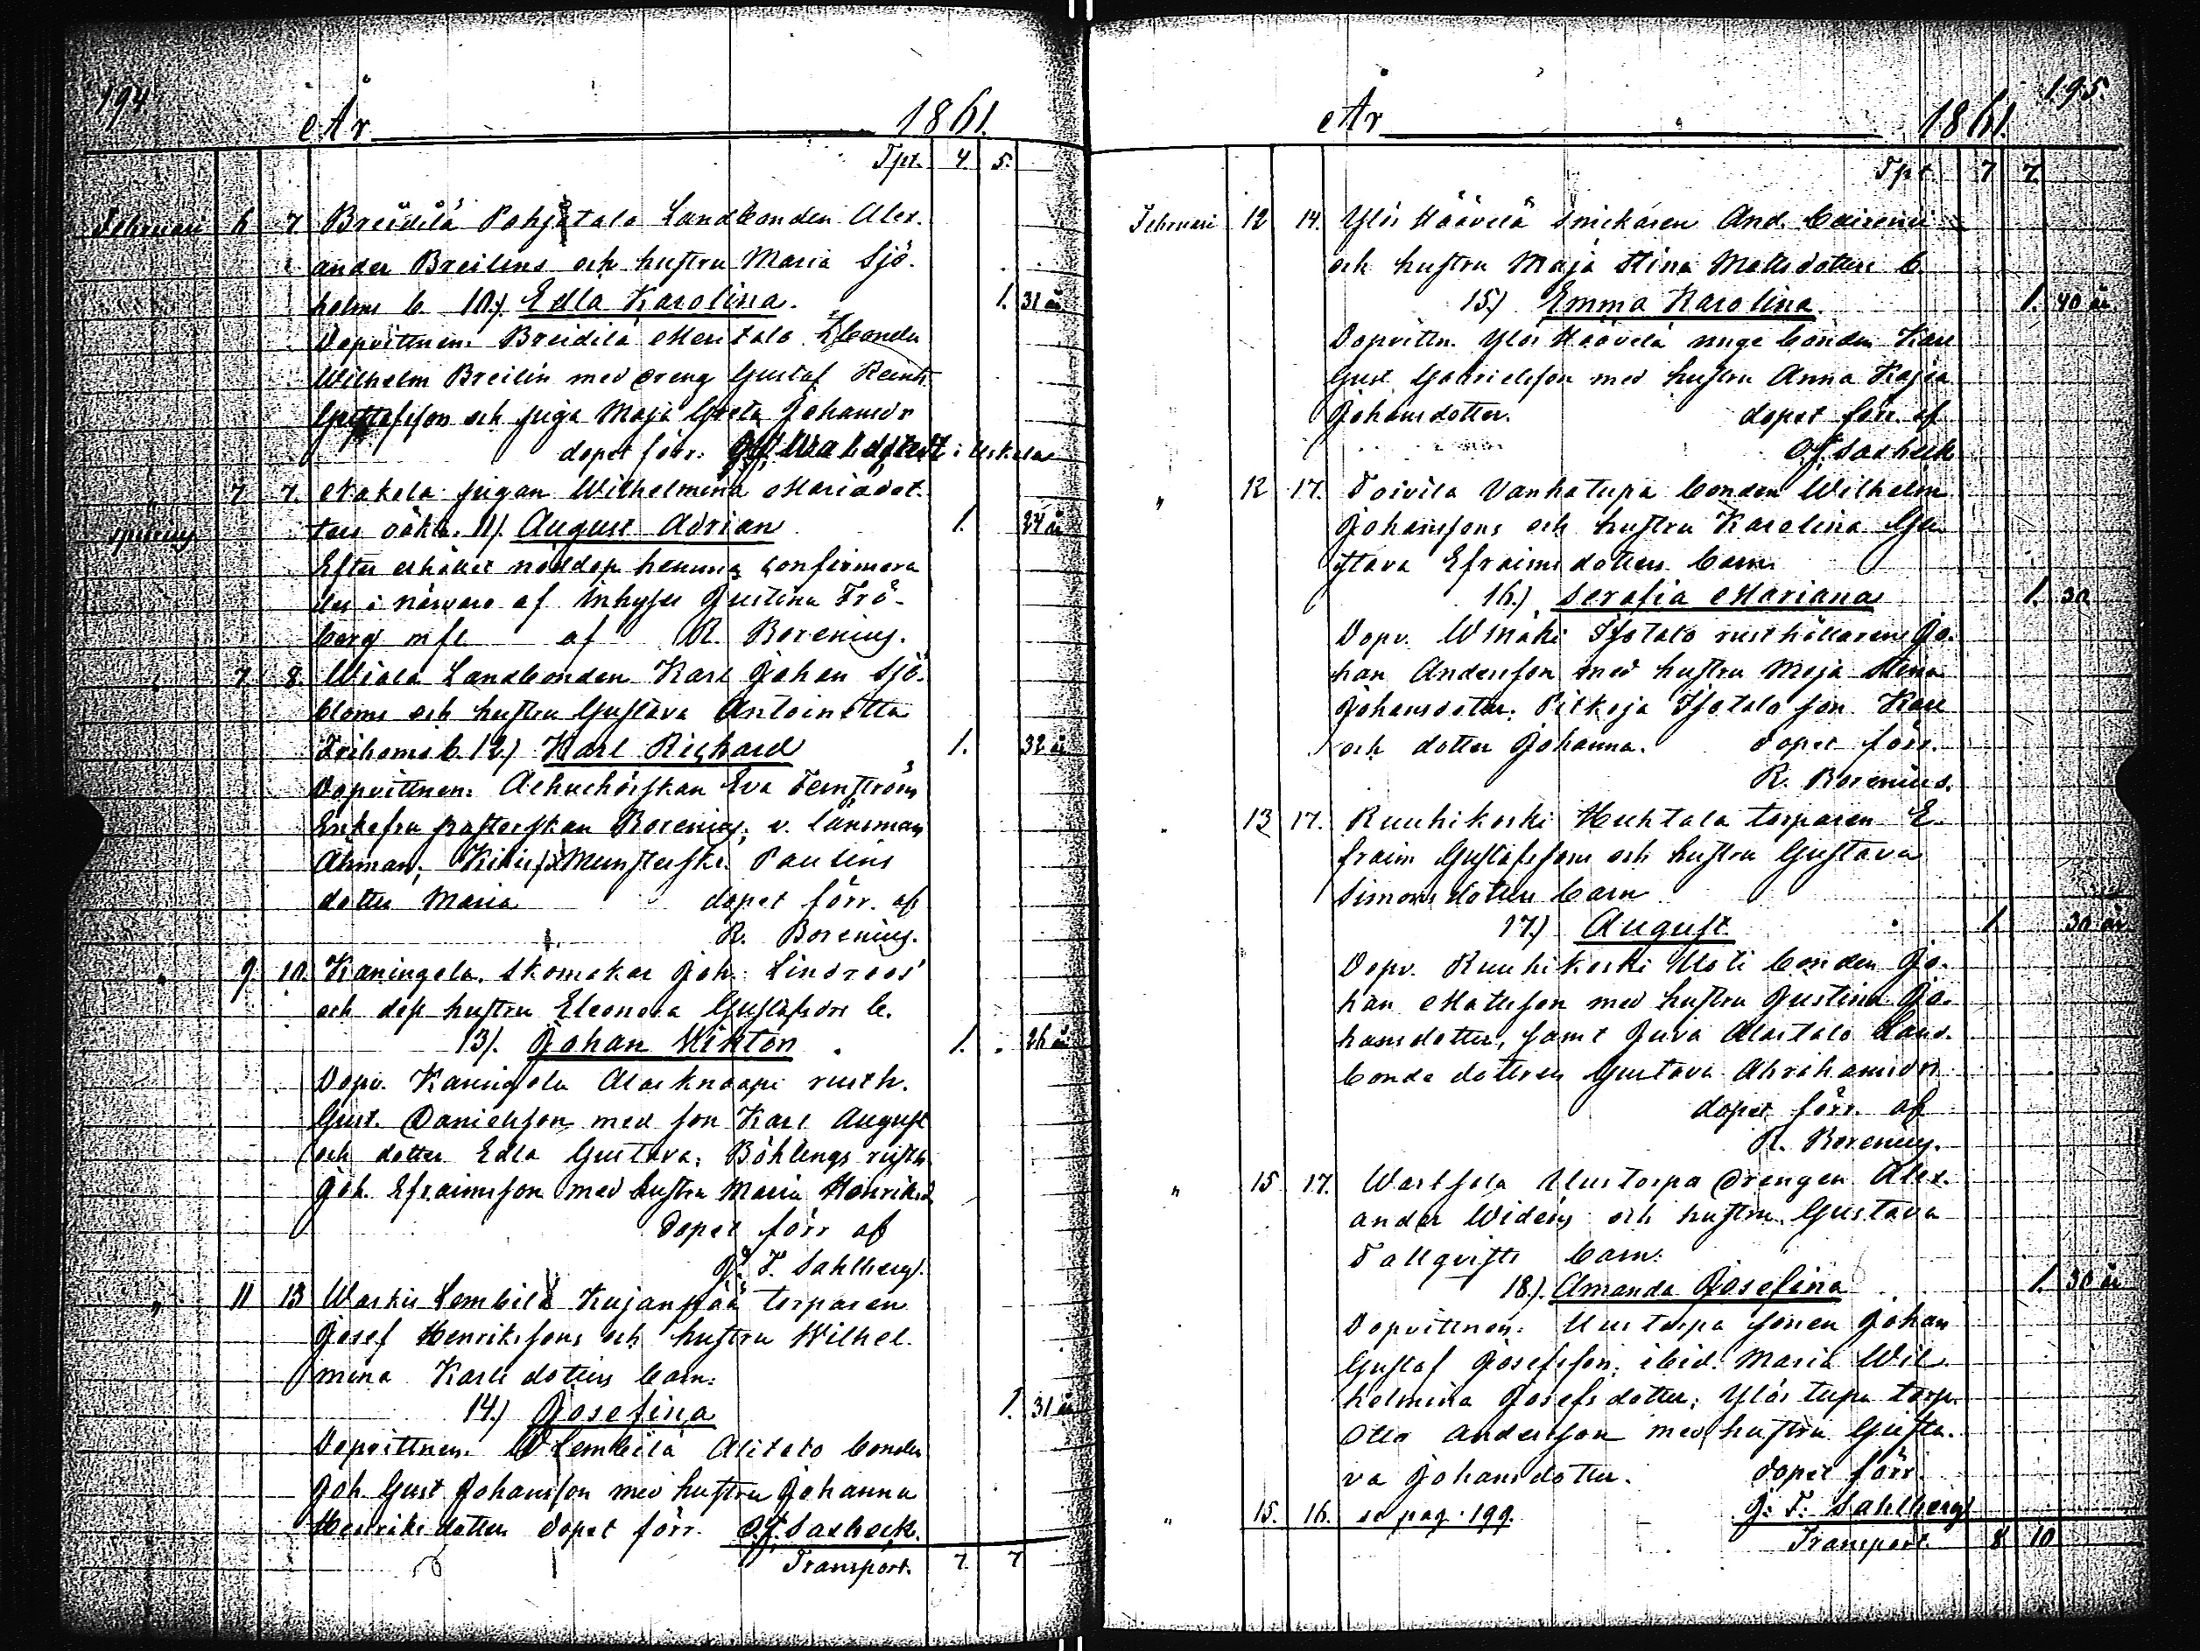 194
År 1861.
Tpt. 4. 5.
Februari 6 7 Breidilä Pohjatalo Landbonden Alex-
ander Breilins och hustru Maria Sjö-
holms b. 10.) Edla Karolina. 1. 31 år
Dopvittnen: Breidilä bonden
Wilhelm Breilin med dreng Gustaf
Gustafsson och piga Maja Greta Johansdr
dopet förr.
7 7. pigan Wilhelmina
ters oäkta. 11). August Adrian 1. 24 år
Efter erhållet nöddop hemma confirmera
des i närvaro af inhyses Justina Frö-
berg mfl af R. Borenius.
7 8. Wiala Landbonden Karl Johan Sjö-
bloms och hustru Gustava Antoinetta
b. 12.) Karl Richard 1. 32 år
Dopvittnen: Eva
Borenius; v. Länsman
Åhman; Paulins
dotter Maria dopet förr. af
R. Borenius.
" 9 10. Kaningola. Skomakar Joh: Lindroos
och dess hustru Eleonora Gustafsdrs b.
13). Johan Wiktor. 1. 26 år
Dopv. Kaningola Alasknaapi rusth.
Gust. Danielsson med son Karl August
och dotter Edla Gustava; Böhlings rusth
Joh. Efraimsson med hustru Maria Henriksd
dopet förr af
G. F. Sahlberg.
" 11 13 Lembilä Kujanpää torparen
Josef Henrikssons och hustru Wilhel-
mina Karlsdotters barn:
14.) Josefina 1. 31 år
Dopvittnen. W Lembilä Alitalo bonden
Joh Gust Johansson med hustru Johanna
Henriksdotter dopet förr.
Transport. 7 7
195.
År 1861.
Tpt. 7 7
Februari 12 14. Ylös Häävelä snickaren And.
och hustru Maja Stina Mattsdotters b.
15.) Emma Karolina. 1. 40 år
Dopvittn. Ylös Häävelä unge bonden Karl
Gust Gabrielsson med hustru Anna Kajsa
Johansdotter. dopet förr. af
" 12 17. Toivila Vanhatupa bonden Wilhelm
Johanssons och hustru Karolina Gu
stava Efraimsdotters barn
16.) Serafia Mariana 1. 30
Dopv. Isotalo rusthållaren Jo-
han Andersson med hustru Maja Stina
Johansdotter. Isotalo son Karl
och dotter Johanna. dopet förr.
R. Borenius.
13 17. Ruuhikoski Huhtala torparen E-
fraim Gustafssons och hustru Gustava
Simonsdotters barn
17.) August 1. 30 år
Dopv. Ruuhikoski Uoti bonden Jo-
han Matsson med hustru Justina Jo-
hansdotter, samt Juva Alastalo Land-
bonde dottren Gustava Abrahamsdr
dopet förr. af
R. Borenius.
" 15 17. Uustorpa drengen Alex-
ander Widens och hustru Gustava
Tallqvists barn:
18.) Amanda Josefina 1. 30 år
Dopvittnen: Uustorpa sonen Johan
Gustaf Josefsson; ibid. Maria Wil-
helmina Josefsdotter; Ylöstupa torp.
Otto Andersson med hustru Gusta-
va Johansdotter. dopet förr.
" 15. 16. se pag. 199. G. F. Sahlberg
Transport. 8 10